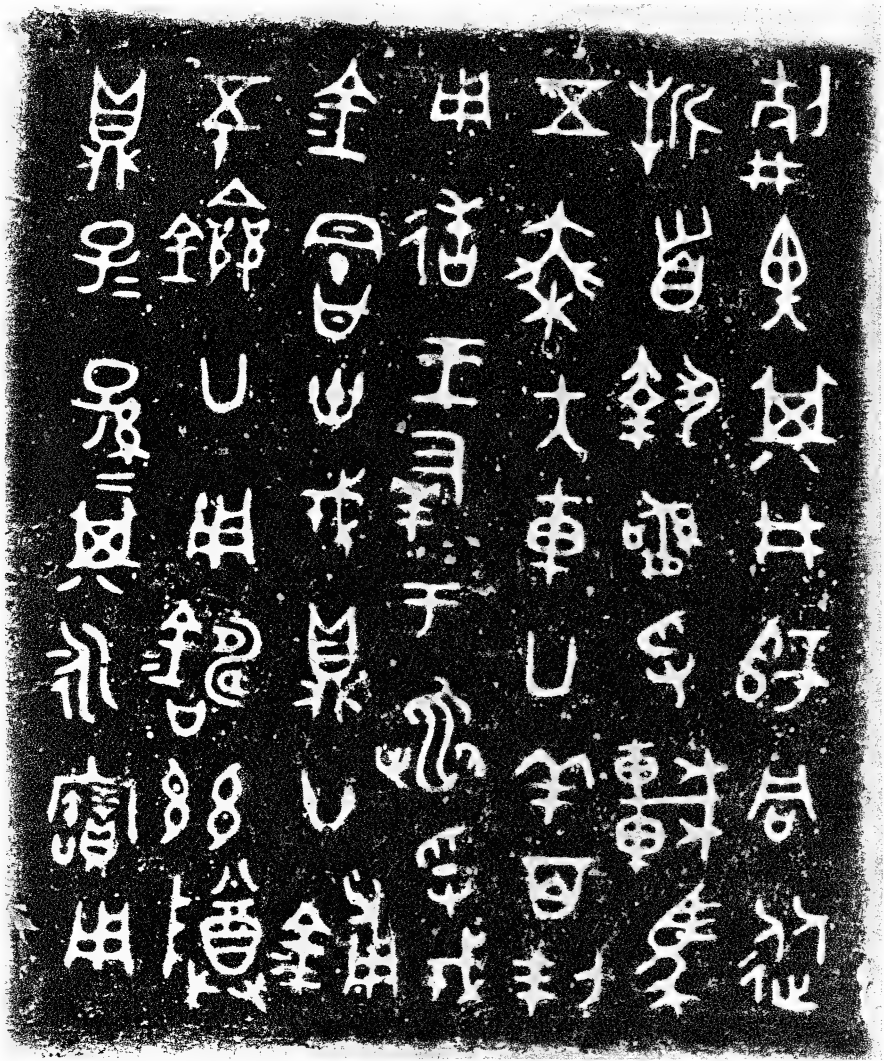 畀其井師同從
折首執訊孚車馬
五乘大車廿羊百刌
用造王羞于黽孚戎
金冑卅戎鼎廿鋪
五十鐱廿用鑄茲尊
鼎子〓孫〓其永寶用